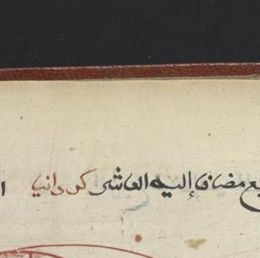 ع مضافا إليه العاشر كورانيا ا